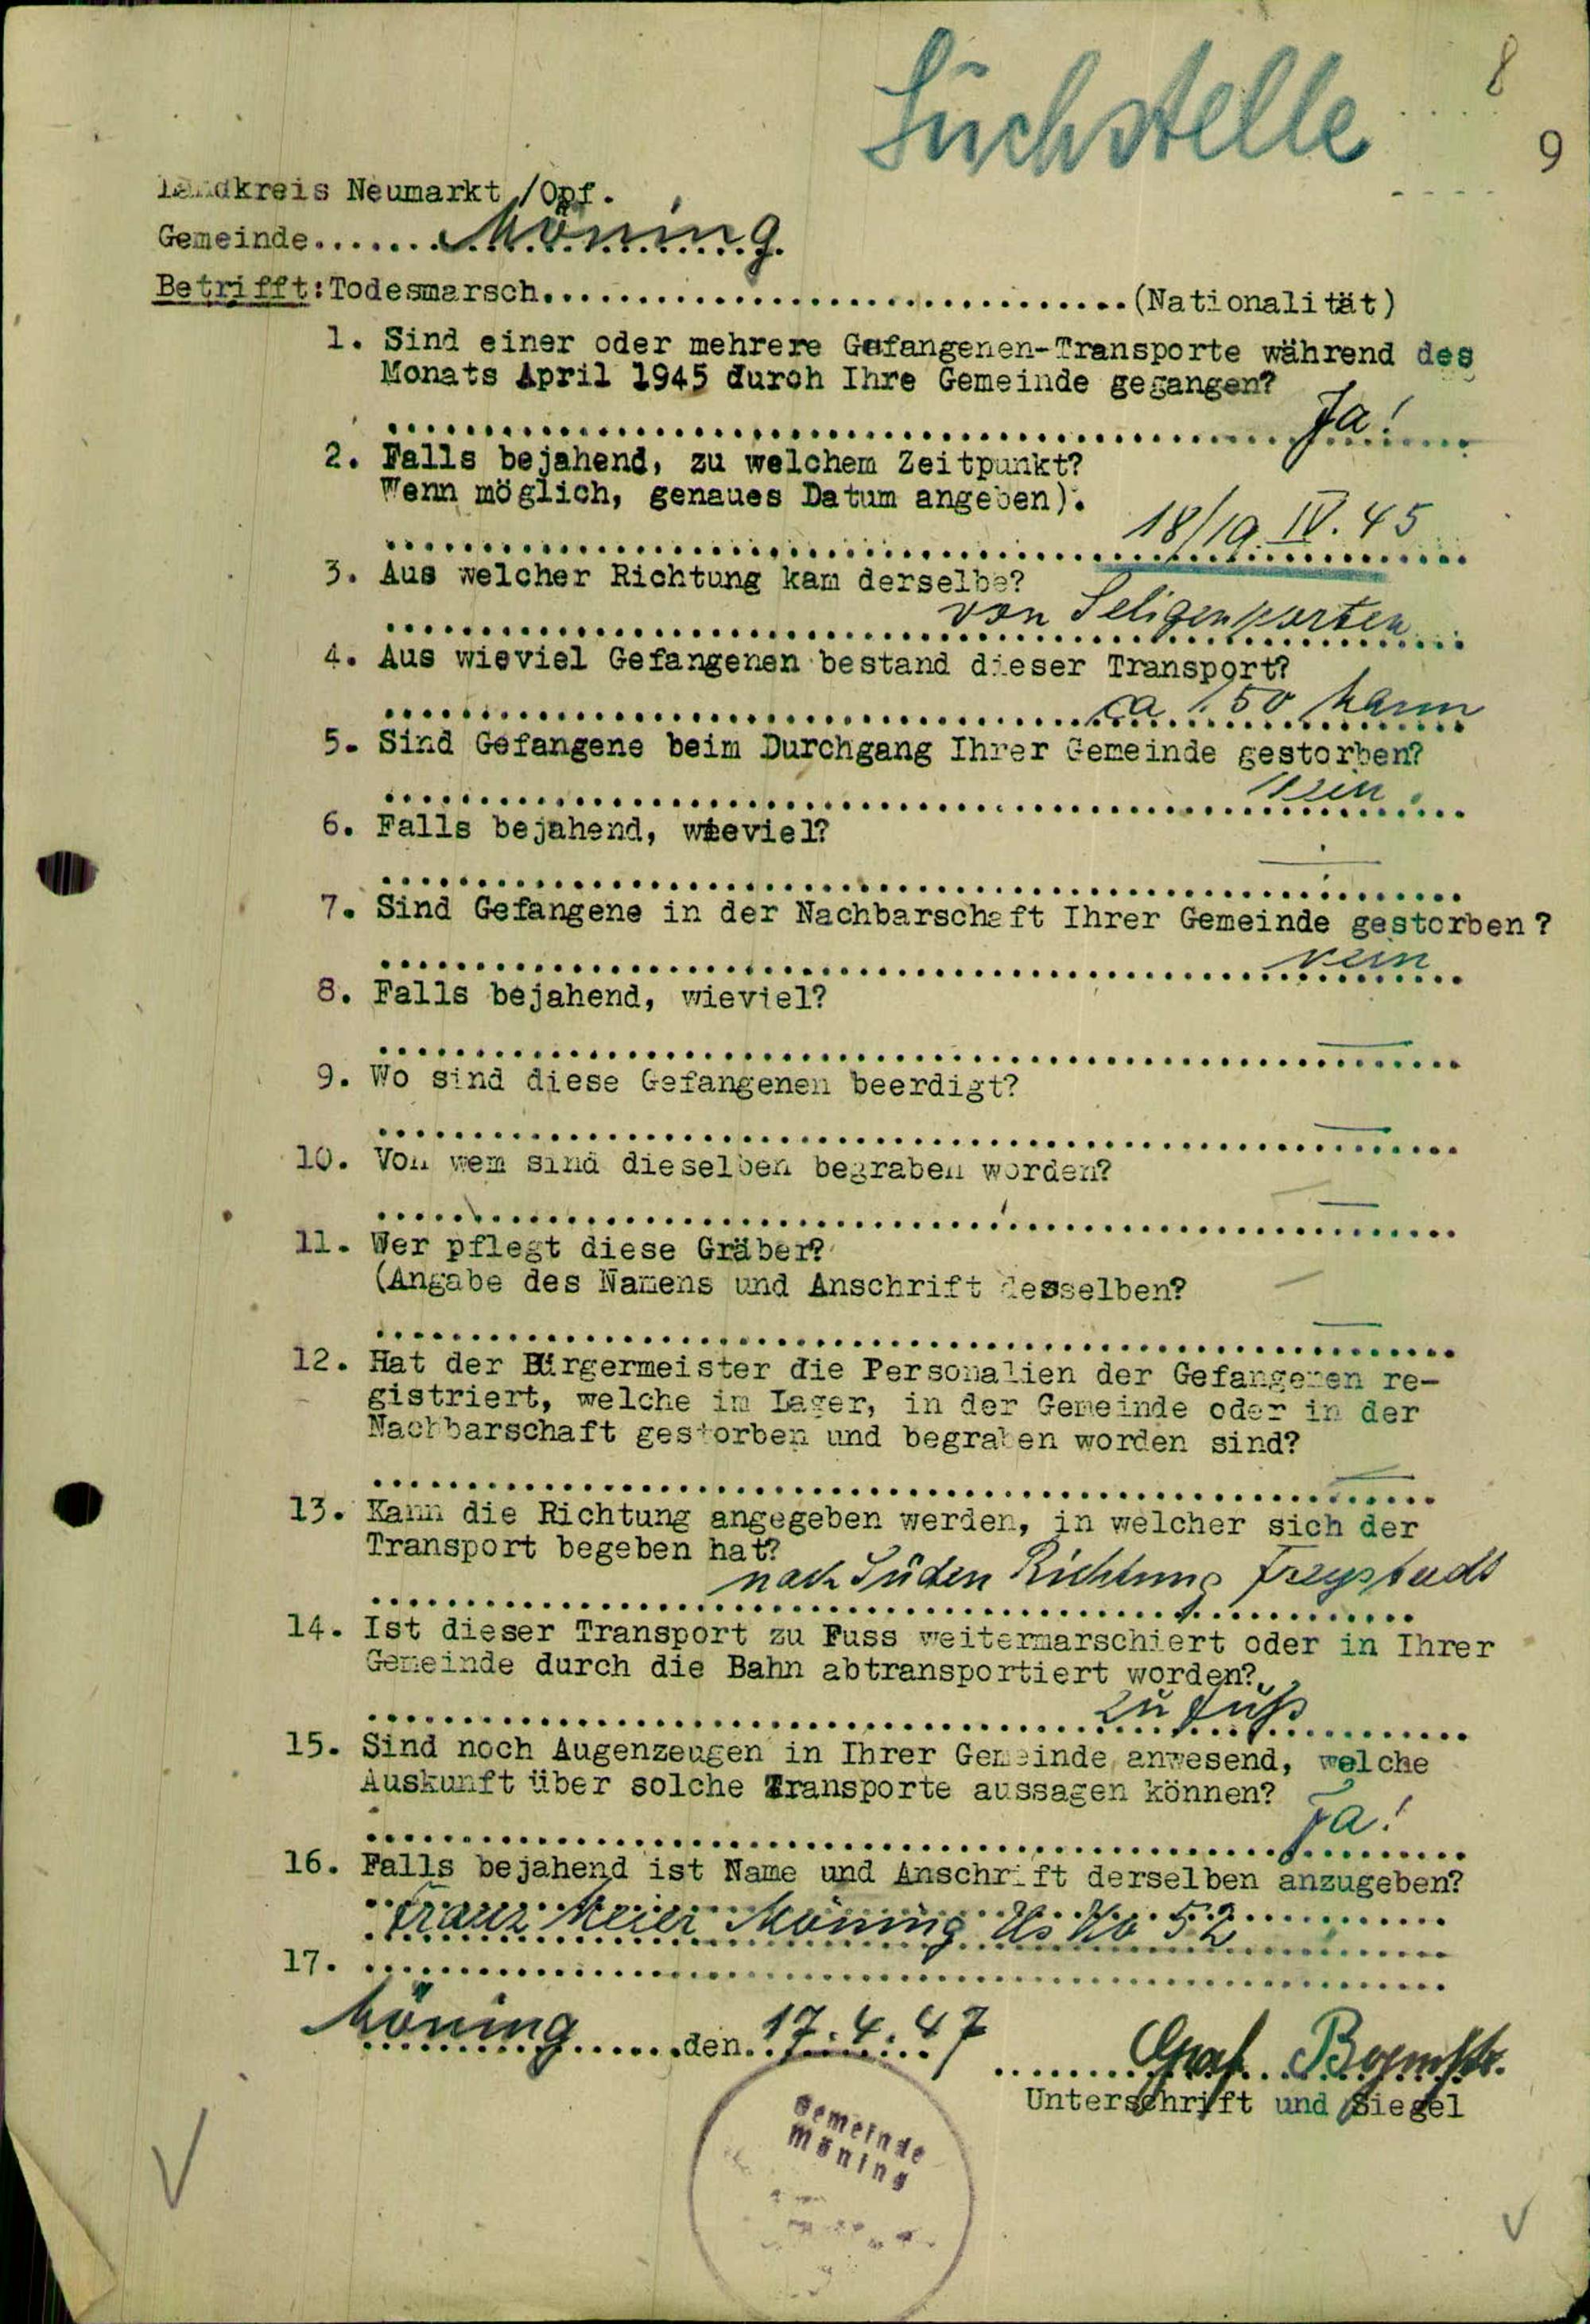 Suchstelle
8
9
Landkreis Neumarkt /Opf.
Gemeinde.......Möning.
Betrifft:Todesmarsch................................(Nationalität)
1. Sind einer oder mehrere Gefangenen-Transporte während des
Monats April 1945 durch Ihre Gemeinde gegangen?
Ja!
2. Falls bejahend, zu welchem Zeitpunkt?
Wenn möglich, genaues Datum angeben).
18/19. IV. 45
3. Aus welcher Richtung kam derselbe?
von Seligenporten
4. Aus wieviel Gefangenen bestand dieser Transport?
ca 150 Mann
5. Sind Gefangene beim Durchgang Ihrer Gemeinde gestorben?
Nein.
6. Falls bejahend, wieviel?
7. Sind Gefangene in der Nachbarschaft Ihrer Gemeinde gestorben?
nein
8. Falls bejahend, wieviel?
9. Wo sind diese Gefangenen beerdigt?
10. Von wem sind dieselben begraben worden?
11. Wer pflegt diese Gräber?
(Angabe des Namens und Anschrift desselben?
12. Hat der Bürgermeister die Personalien der Gefangenen re-
gistriert, welche im Lager, in der Gemeinde oder in der
Nachbarschaft gestorben und begraben worden sind?
13. Kann die Richtung angegeben werden, in welcher sich der
Transport begeben hat?
nach Süden Richtung Freystadt
14. Ist dieser Transport zu Fuss weitermarschiert oder in Ihrer
Gemeinde durch die Bahn abtransportiert worden?
zu Fuß
15. Sind noch Augenzeugen in Ihrer Gemeinde anwesend, welche
Auskunft über solche Transporte aussagen können?
Ja!
16. Falls bejahend ist Name und Anschrift derselben anzugeben?
Franz Meier Möning Hs No 52
17.
Möning.......den.17.4.47
Graf Bürgmstr.
Unterschrift und Siegel
Gemeinde
Möning